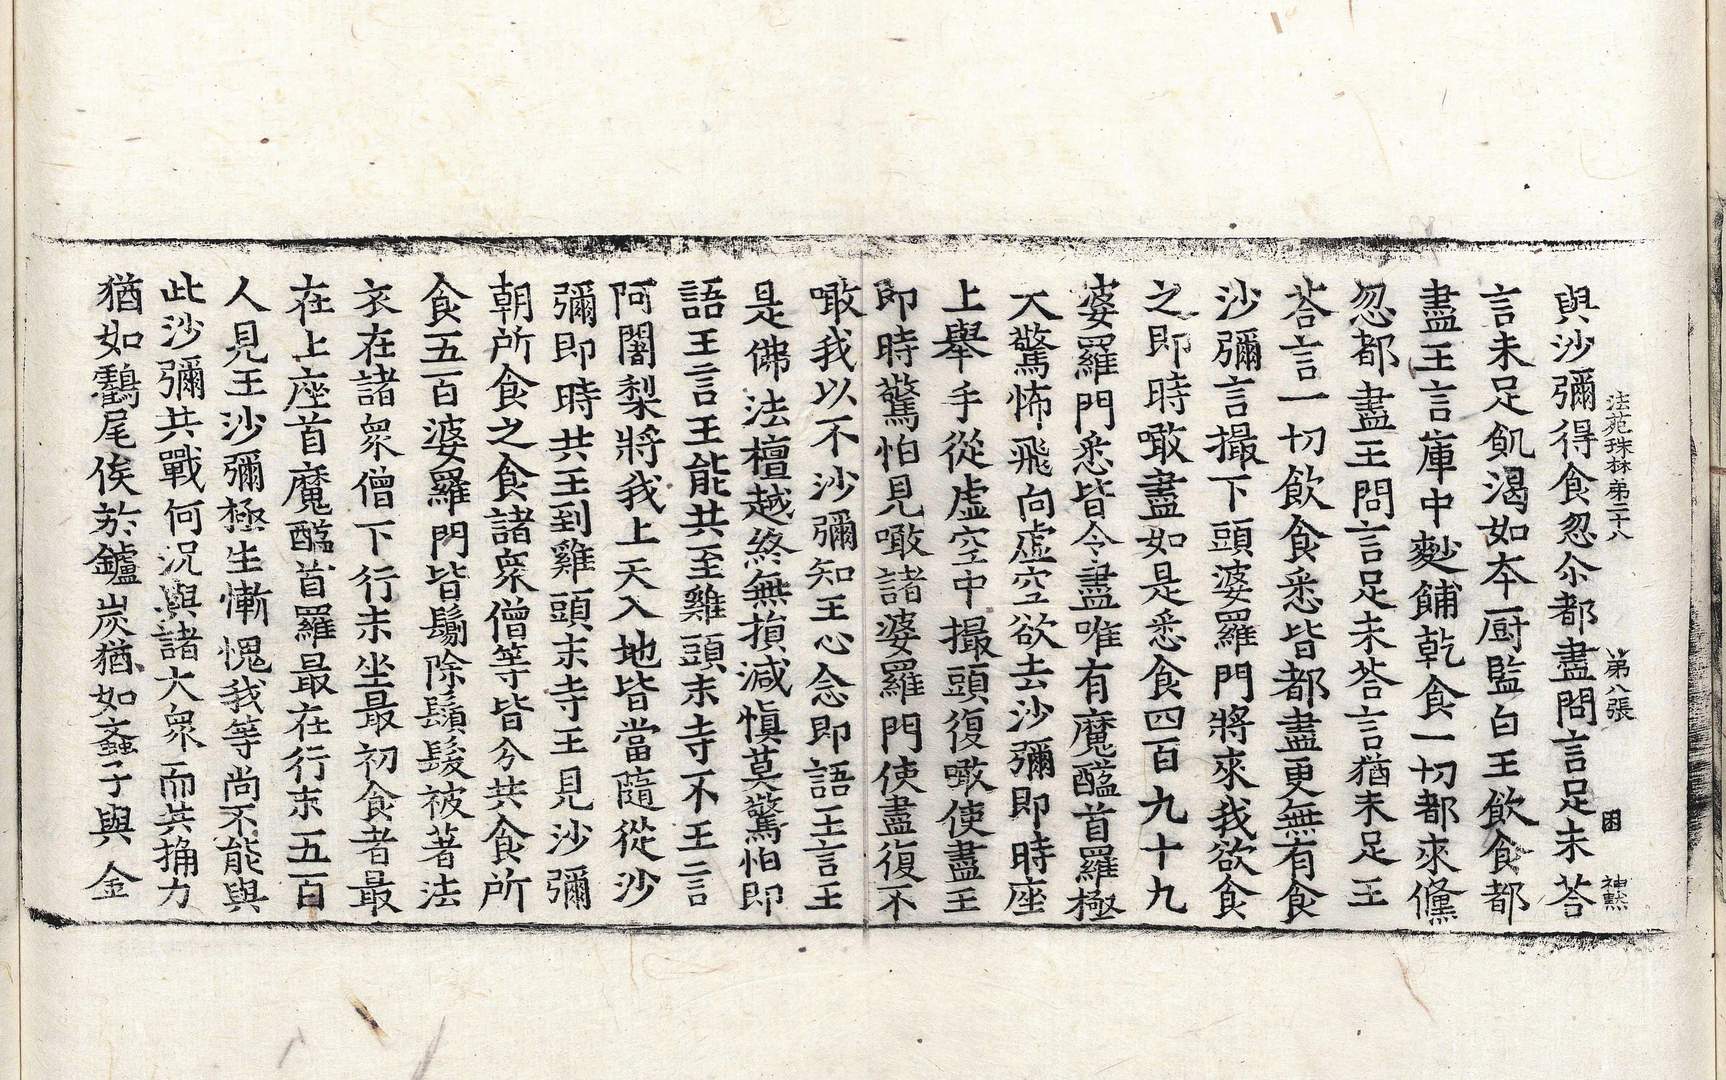 法苑珠林第二十八　第八張　困　神黙
與沙彌得食忽尒都盡問言足未荅
言未足飢渴如本厨監白王飲食都
盡王言庫中麨餔乾食一切都來儵
忽都盡王問言足未荅言猶未足王
荅言一切飲食悉皆都盡更無有食
沙彌言撮下頭婆羅門將來我欲食
之即時噉盡如是悉食四百九十九
婆羅門悉皆令盡唯有魔醯首羅極
大驚怖飛向虛空欲去沙彌即時座
上舉手從虛空中撮頭復噉使盡王
即時驚怕見噉諸婆羅門使盡復不
噉我以不沙彌知王心念即語王言王
是佛法檀越終無損減慎莫驚怕即
語王言王能共至雞頭末寺不王言
阿闍梨將我上天入地皆當隨從沙
彌即時共王到雞頭末寺王見沙彌
朝所食之食諸衆僧等皆分共食所
食五百婆羅門皆鬄除鬚髮被著法
衣在諸衆僧下行末坐最初食者最
在上座首魔醯首羅最在行末五百
人見王沙彌極生慚愧我等尚不能與
此沙彌共戰何況與諸大衆而共捔力
猶如鷚尾俟於鑪炭猶如蚉子與金